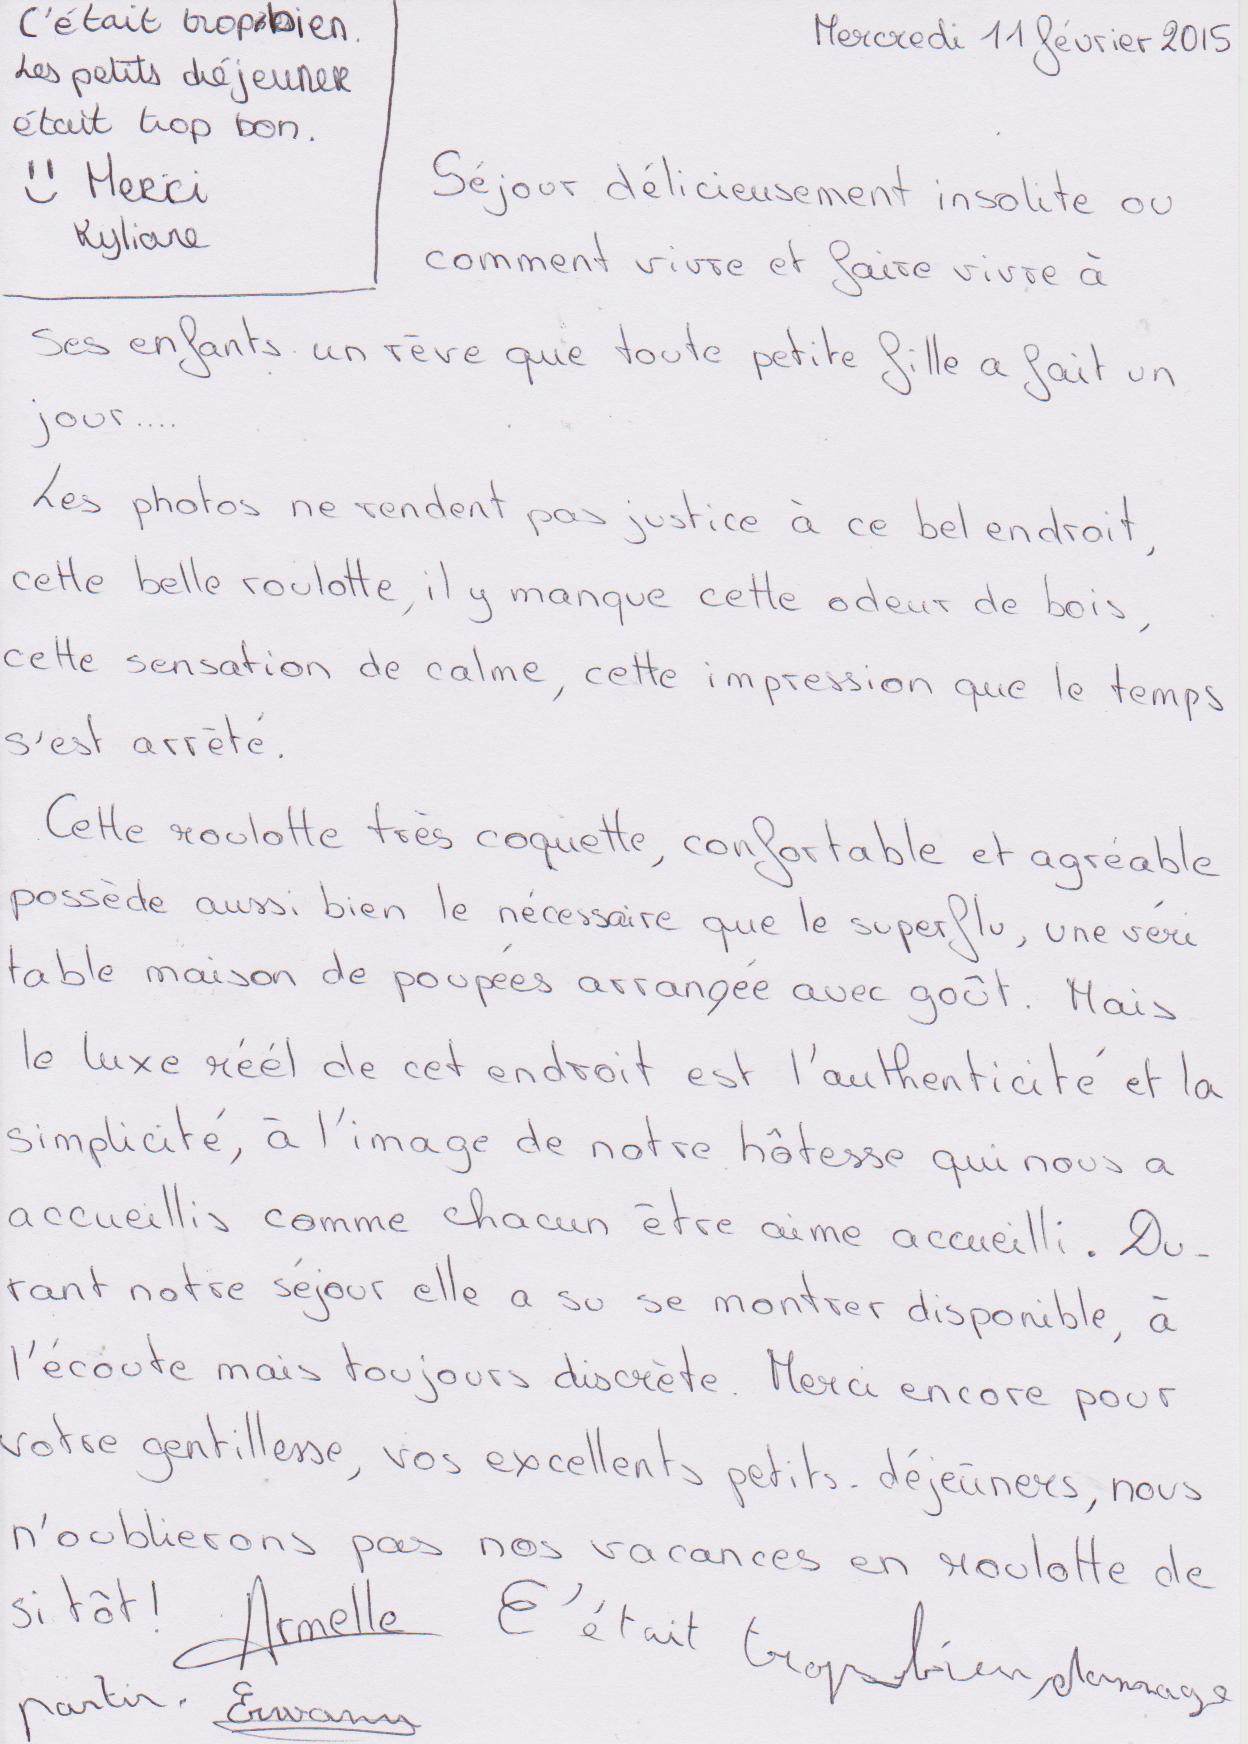 C'était trop bien.
Les petits déjeuner
était trop bon.
Merci
Kyliane
Mercredi 11 février 2015
Séjour délicieusement insolite ou
comment vivre et faire vivre à
ses enfants un rêve que toute petite fille a fait un
jour....
Les photos ne rendent pas justice à ce bel endroit,
cette belle roulotte, il y manque cette odeur de bois,
cette sensation de calme, cette impression que le temps
s'est arrêté.
Cette roulotte très coquette, confortable et agréable
possède aussi bien le nécessaire que le superflu, une véri
table maison de poupées arrangée avec goût. Mais
le luxe réél de cet endroit est l'authenticité et la
simplicité, à l'image de notre hôtesse qui nous a
accueillis comme chacun être aime accueilli. Du-
rant notre séjour elle a su se montrer disponible, à
l'écoute mais toujours discrète. Merci encore pour
votre gentillesse, vos excellents petits-déjeûners, nous
n'oublierons pas nos vacances en roulotte de
si tôt! Armelle
C'était trop bien, dommage
partir. Erwann